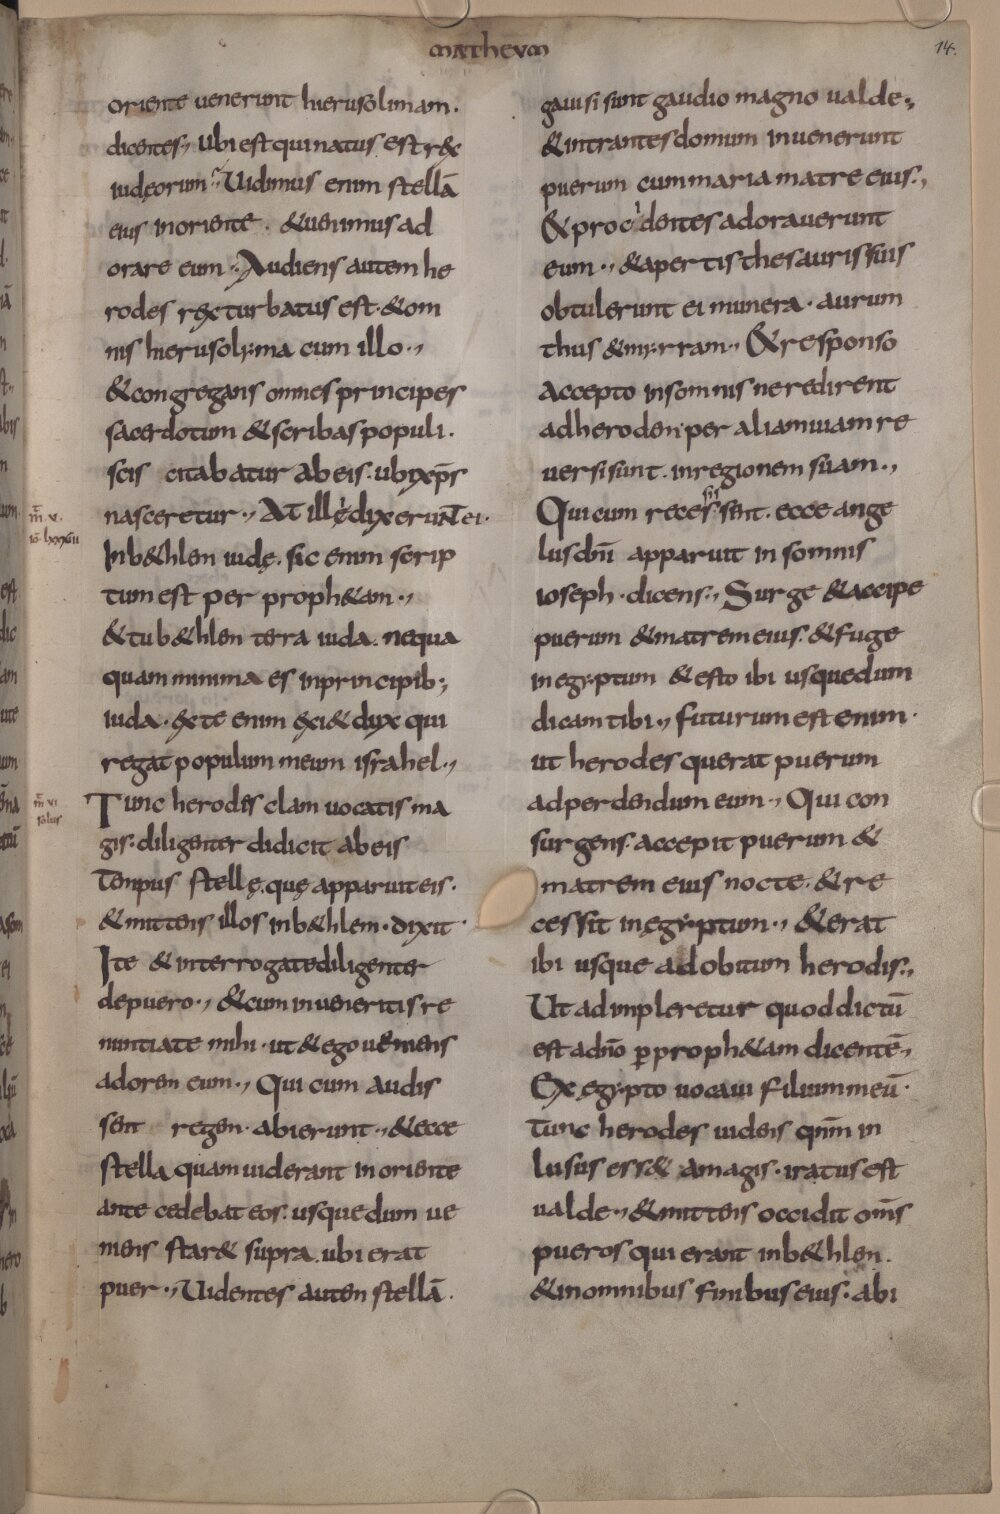 matheum
14.
oriente uenerunt hierusolimam.
dicentes., Ubi est qui natus est r&x
iudęorum? Uidimus enim stellā
eius in oriente . & uenimus ad
orare eum., Audiens autem he
rodes rex turbatus est. & om
nis hierusolyma cum illo.,
& congregans omnes principes
sacerdotum & scribas populi.
scis citabatur ab eis. ubi xp̄s
nasceretur., At illę dixerunt ei.
m̄. v.
iō. lxxxiii
In b&hlem iudę. sic enim scrip
tum est per proph&am.,
& tu b&hlem terra iuda. nequa
quam minima es in principib;
iuda. ex te enim exi& dux qui
regat populum meum israhel.,
m̄ vi
solus
Tunc herodes clam uocatis ma
gis. diligenter didicit ab eis
tempus stellę. quę apparuit eis.
& mittens illos in b&hlem. dixit.
Ite & interrogate diligenter
de puero., & cum inueneritis re
nuntiate mihi. ut & ego ueniens
adorem eum., Qui cum audis
sent regem. abierunt., & ecce
stella quam uiderant in oriente
antecedebat eos. usque dum ue
niens star& supra. ubi erat
puer., Uidentes autem stellā.
gauisi sunt gaudio magno ualde.,
& intrantes domum inuenerunt
puerum cum maria matre eius.,
& procidentes adorauerunt
eum., & apertis thesauris suis
obtulerunt ei munera. aurum
thus & myrram., & responso
accepto in somnis ne redirent
ad heroden. per aliam uiam re
uersi sunt. in regionem suam.,
Qui cum recessissent. ecce ange
lus dn̄i apparuit in somnis
ioseph. dicens., Surge & accipe
puerum & matrem eius. & fuge
in egyptum & esto ibi usque dum
dicam tibi., futurum est enim.
ut herodes querat puerum
ad perdendum eum., Qui con
surgens. accepit puerum &
matrem eius nocte. & re
cessit in ęgyptum., & erat
ibi usque ad obitum herodis.,
Ut adimpleretur quod dictū
est a dn̄o ꝑ proph&am dicentē.,
Ex egypto uocaui filium meū.
Tunc herodes uidens qnm̄ in
lusus ess& a magis. iratus est
ualde., & mittens occidit om̄s
pueros qui erant in b&hlem.
& in omnibus finibus eius. a bi